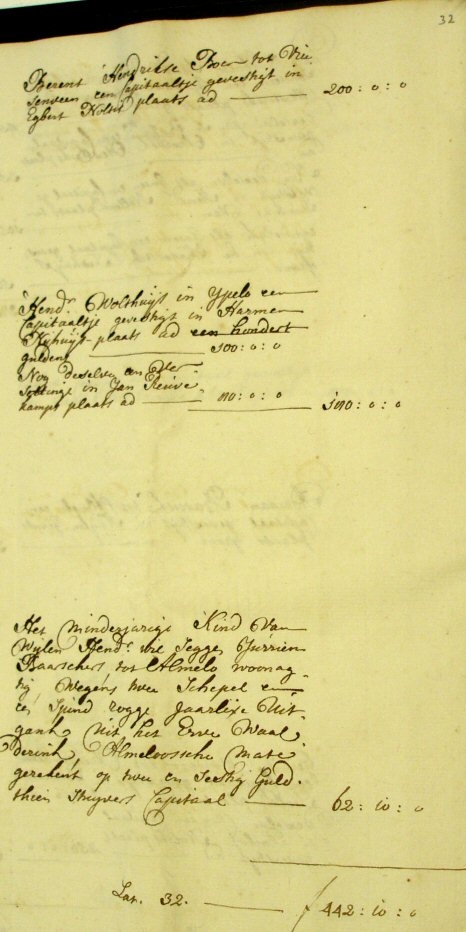 32
Berent Hendrikse Boer tot Vrie
senveen een Capitaaltje gevestigt in
Egbert Nolten plaats ad 200 : 0 : 0
Hend.r Wolthuijs in Ypelo een
Capitaaltje gevestigt in Harmen
plaats ad een hondert
gulden 100 : 0 : 0
Nog Deselve een
in Jan
kamps plaats ad : 0 : 0 : 0 : 0
Het minderjarige Kind Van
Wijlen Hend.r wil segge Jurrien
Baarschers tot Almelo woonag-
tig, Wegens twee Schepel en
ee, Spind rogge Jaarlixe Uit-
gank uit het Erve Waal
derink Almeloossche mate
gerekent op twee en Sestig Guld.
thien Stuyvers Capitaal 62 : 10 : 0
Lat. 32. f 442 : 10 : 0